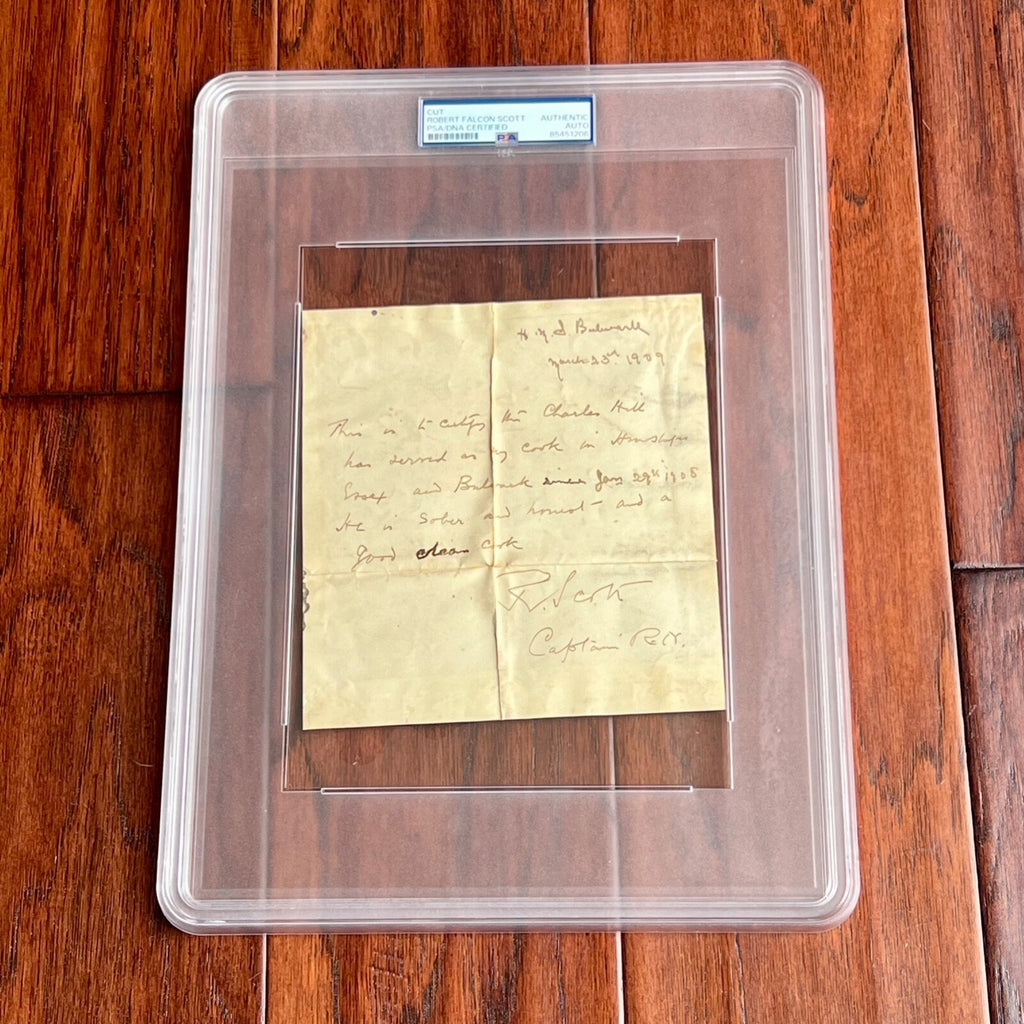 CUT
ROBERT FALCON SCOTT AUTHENTIC
PSA/DNA CERTIFIED AUTO
PSA 85451206
H.M.S Bulwark
March 23rd 1909
This is to certify that Charles Hill
has served as my cook in
Essex and Bulwark since Jany 29th 1908
He is sober and honest - and a
good clean cook
R. Scott
Captain R.N.